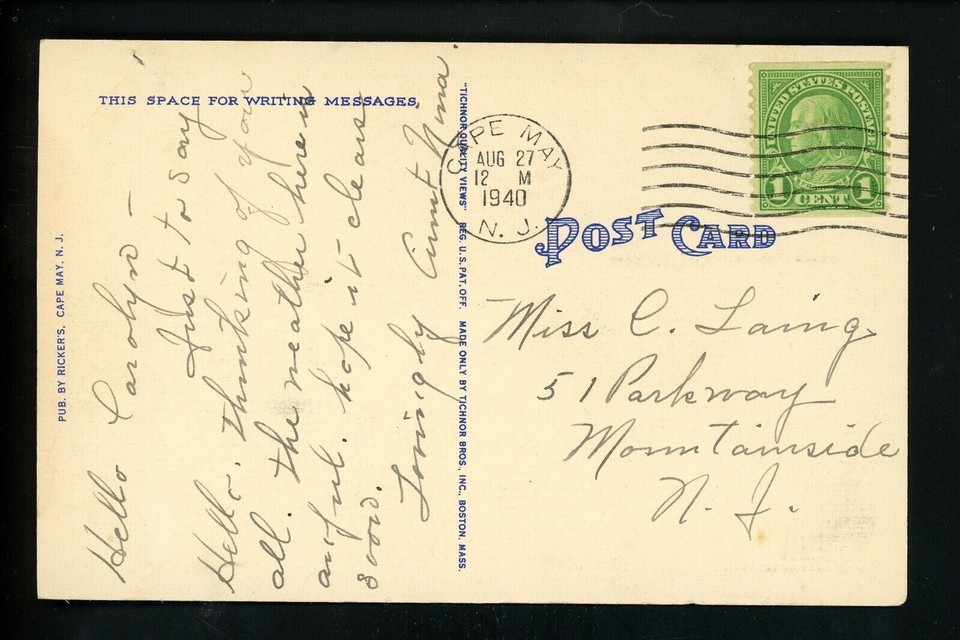 THIS SPACE FOR WRITING MESSAGES
Hello Carolyn –
Just to say
Hello. Thinking of you
all. The weather here is
awful. hope it clears
soon.
Lovingly Aunt Nina.
PUB. BY RICKER'S, CAPE MAY, N. J.
"TICHNOR QUALITY VIEWS" REG. U. S. PAT. OFF. MADE ONLY BY TICHNOR BROS., INC., BOSTON, MASS.
CAPE MAY
AUG 27
12 M
1940
N. J.
UNITED STATES POSTAGE
1 CENT 1
POST CARD
Miss C. Laing
51 Parkway
Mountainside
N. J.